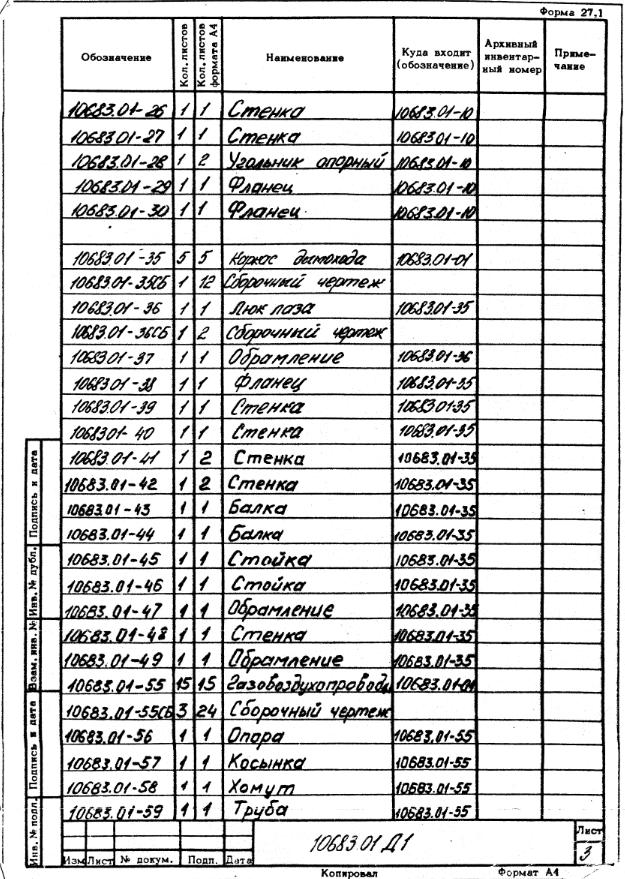 Форма 27,1
Обозначение Кол. листов Кол. листов формата А4 Наименование Куда входит (обозначение) Архивный инвентарный номер Примечание
10683.01-26 1 1 Стенка 10683.01-10
10683.01-27 1 1 Стенка 10683.01-10
10683.01-28 1 2 Угольник опорный 10683.01-10
10683.01-29 1 1 Фланец 10683.01-10
10683.01-30 1 1 Фланец 10683.01-10
10683.01-35 5 5 Каркас дымохода 10683.01-01
10683.01-35СБ 1 12 Сборочный чертеж
10683.01-36 1 1 Люк лаза 10683.01-35
10683.01-36СБ 1 2 Сборочный чертеж
10683.01-37 1 1 Обрамление 10683.01-36
10683.01-38 1 1 Фланец 10683.01-35
10683.01-39 1 1 Стенка 10683.01-35
10683.01-40 1 1 Стенка 10683.01-35
10683.01-41 1 2 Стенка 10683.01-35
10683.01-42 1 2 Стенка 10683.01-35
10683.01-43 1 1 Балка 10683.01-35
10683.01-44 1 1 Балка 10683.01-35
10683.01-45 1 1 Стойка 10683.01-35
10683.01-46 1 1 Стойка 10683.01-35
10683.01-47 1 1 Обрамление 10683.01-35
10683.01-48 1 1 Стенка 10683.01-35
10683.01-49 1 1 Обрамление 10683.01-35
10683.01-55 15 15 Газовоздухопроводы 10683.01-01
10683.01-55СБ 3 24 Сборочный чертеж
10683.01-56 1 1 Опора 10683.01-55
10683.01-57 1 1 Косынка 10683.01-55
10683.01-58 1 1 Хомут 10683.01-55
10683.01-59 1 1 Труба 10683.01-55
Инв. № подл. Подпись и дата Взам. инв. № Инв. № дубл. Подпись и дата
Изм Лист № докум. Подп. Дата
10683.01 Д1
Лист
3
Копировал Формат А4